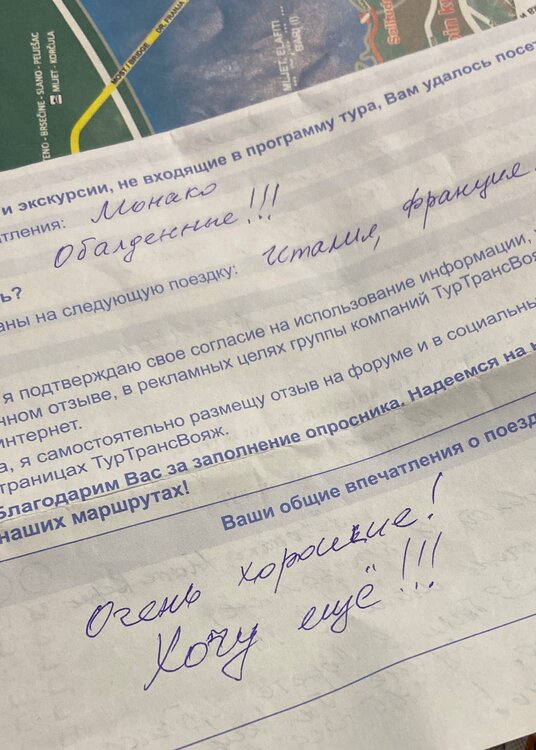 TENO - BRSEČINE - SLANO - PELJEŠAC
MLJET - KORČULA
MOST / BRIDGE
DR. FRANJA
MLJET, ELAFITI
и экскурсии, не входящие в программу тура, Вам удалось посет
тления: Монако
Обалденные!!!
ь?
аны на следующую поездку: Италия, Франция.
я подтверждаю свое согласие на использование информации,
нном отзыве, в рекламных целях группы компаний ТурТрансВояж
интернет.
а, я самостоятельно размещу отзыв на форуме и в социальных
траницах ТурТрансВояж.
Благодарим Вас за заполнение опросника. Надеемся на
наших маршрутах!
Ваши общие впечатления о поезд
Очень хорошие!
Хочу ещё!!!